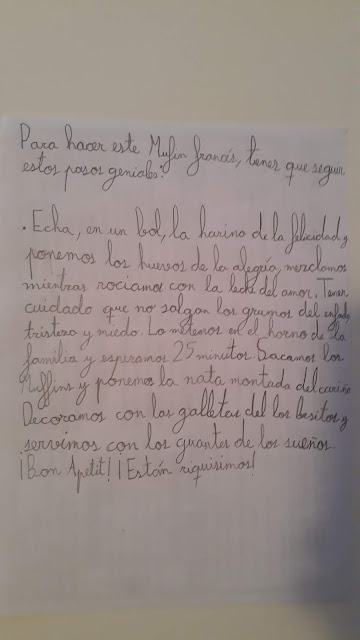 Para hacer este Mufin francés, tienes que seguir
estos pasos geniales:
. Echa, en un bol, la harina de la felicidad y
ponemos los huevos de la alegría, mezclamos
mientras rociamos con la leche del amor. Tener
cuidado que no salgan los grumos del enfado,
tristeza y miedo. Lo metemos en el horno de la
familia y esperamos 25 minutos. Sacamos los
Muffins y ponemos la nata montada del cariño.
Decoramos con las galletas del los besitos y
servimos con los guantes de los sueños.
¡Bon Apetit! ¡Están riquisimos!